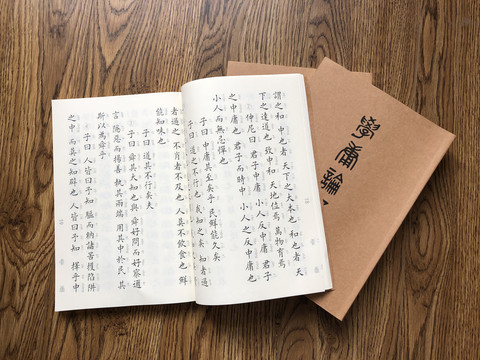 謂之和 中也者 天下之大本也 和也者 天
下之達道也 致中和 天地位焉 萬物育焉
仲尼曰 君子中庸 小人反中庸 君子
之中庸也 君子而時中 小人之反中庸也
小人而無忌憚也
子曰 中庸其至矣乎 民鮮能久矣
子曰 道之不行也 我知之矣 知者過
者過之 不肖者不及也 人莫不飲食也 鮮
能知味也
子曰 道其不行矣夫
子曰 舜其大知也與 舜好問而好察邇
言 隱惡而揚善 執其兩端 用其中於民 其
斯以為舜乎
子曰 人皆曰予知 驅而納諸罟擭陷阱
之中 而莫之知辟也 人皆曰予知 擇乎中
學庸論